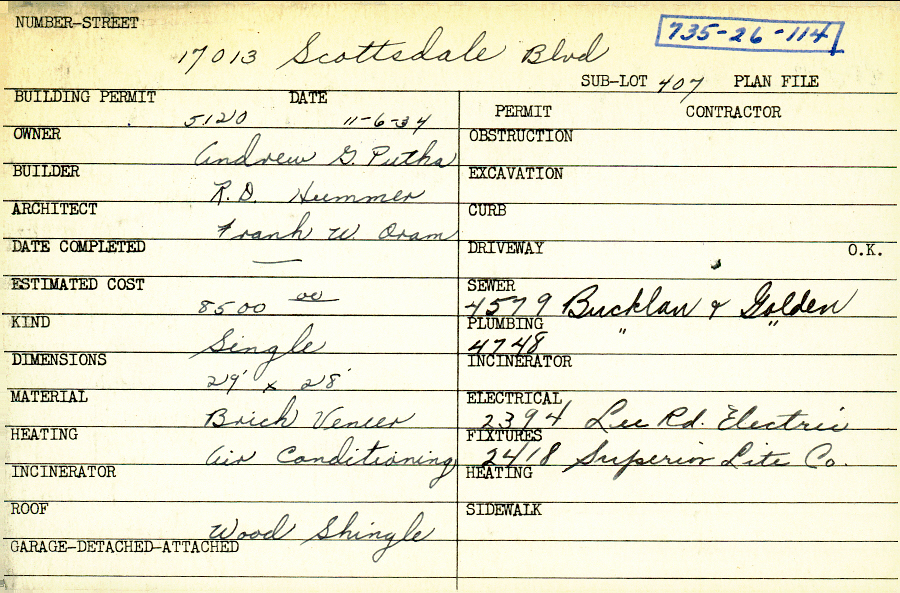 NUMBER-STREET
735-26-114
17013 Scottsdale Blvd
SUB-LOT 407 PLAN FILE
BUILDING PERMIT DATE
5120 11-6-34
OWNER
Andrew G. Putka
BUILDER
R.D. Hummer
ARCHITECT
Frank W. Oram
DATE COMPLETED
—
ESTIMATED COST
8500 00
KIND
Single
DIMENSIONS
29' x 28'
MATERIAL
Brick Veneer
HEATING
Air Conditioning
INCINERATOR
ROOF
Wood Shingle
GARAGE-DETACHED-ATTACHED
PERMIT CONTRACTOR
OBSTRUCTION
EXCAVATION
CURB
DRIVEWAY O.K.
SEWER
4579 Bucklan & Golden
PLUMBING " "
4748
INCINERATOR
ELECTRICAL
2394 Lee Rd. Electric
FIXTURES
2418 Superior Lite Co.
HEATING
SIDEWALK